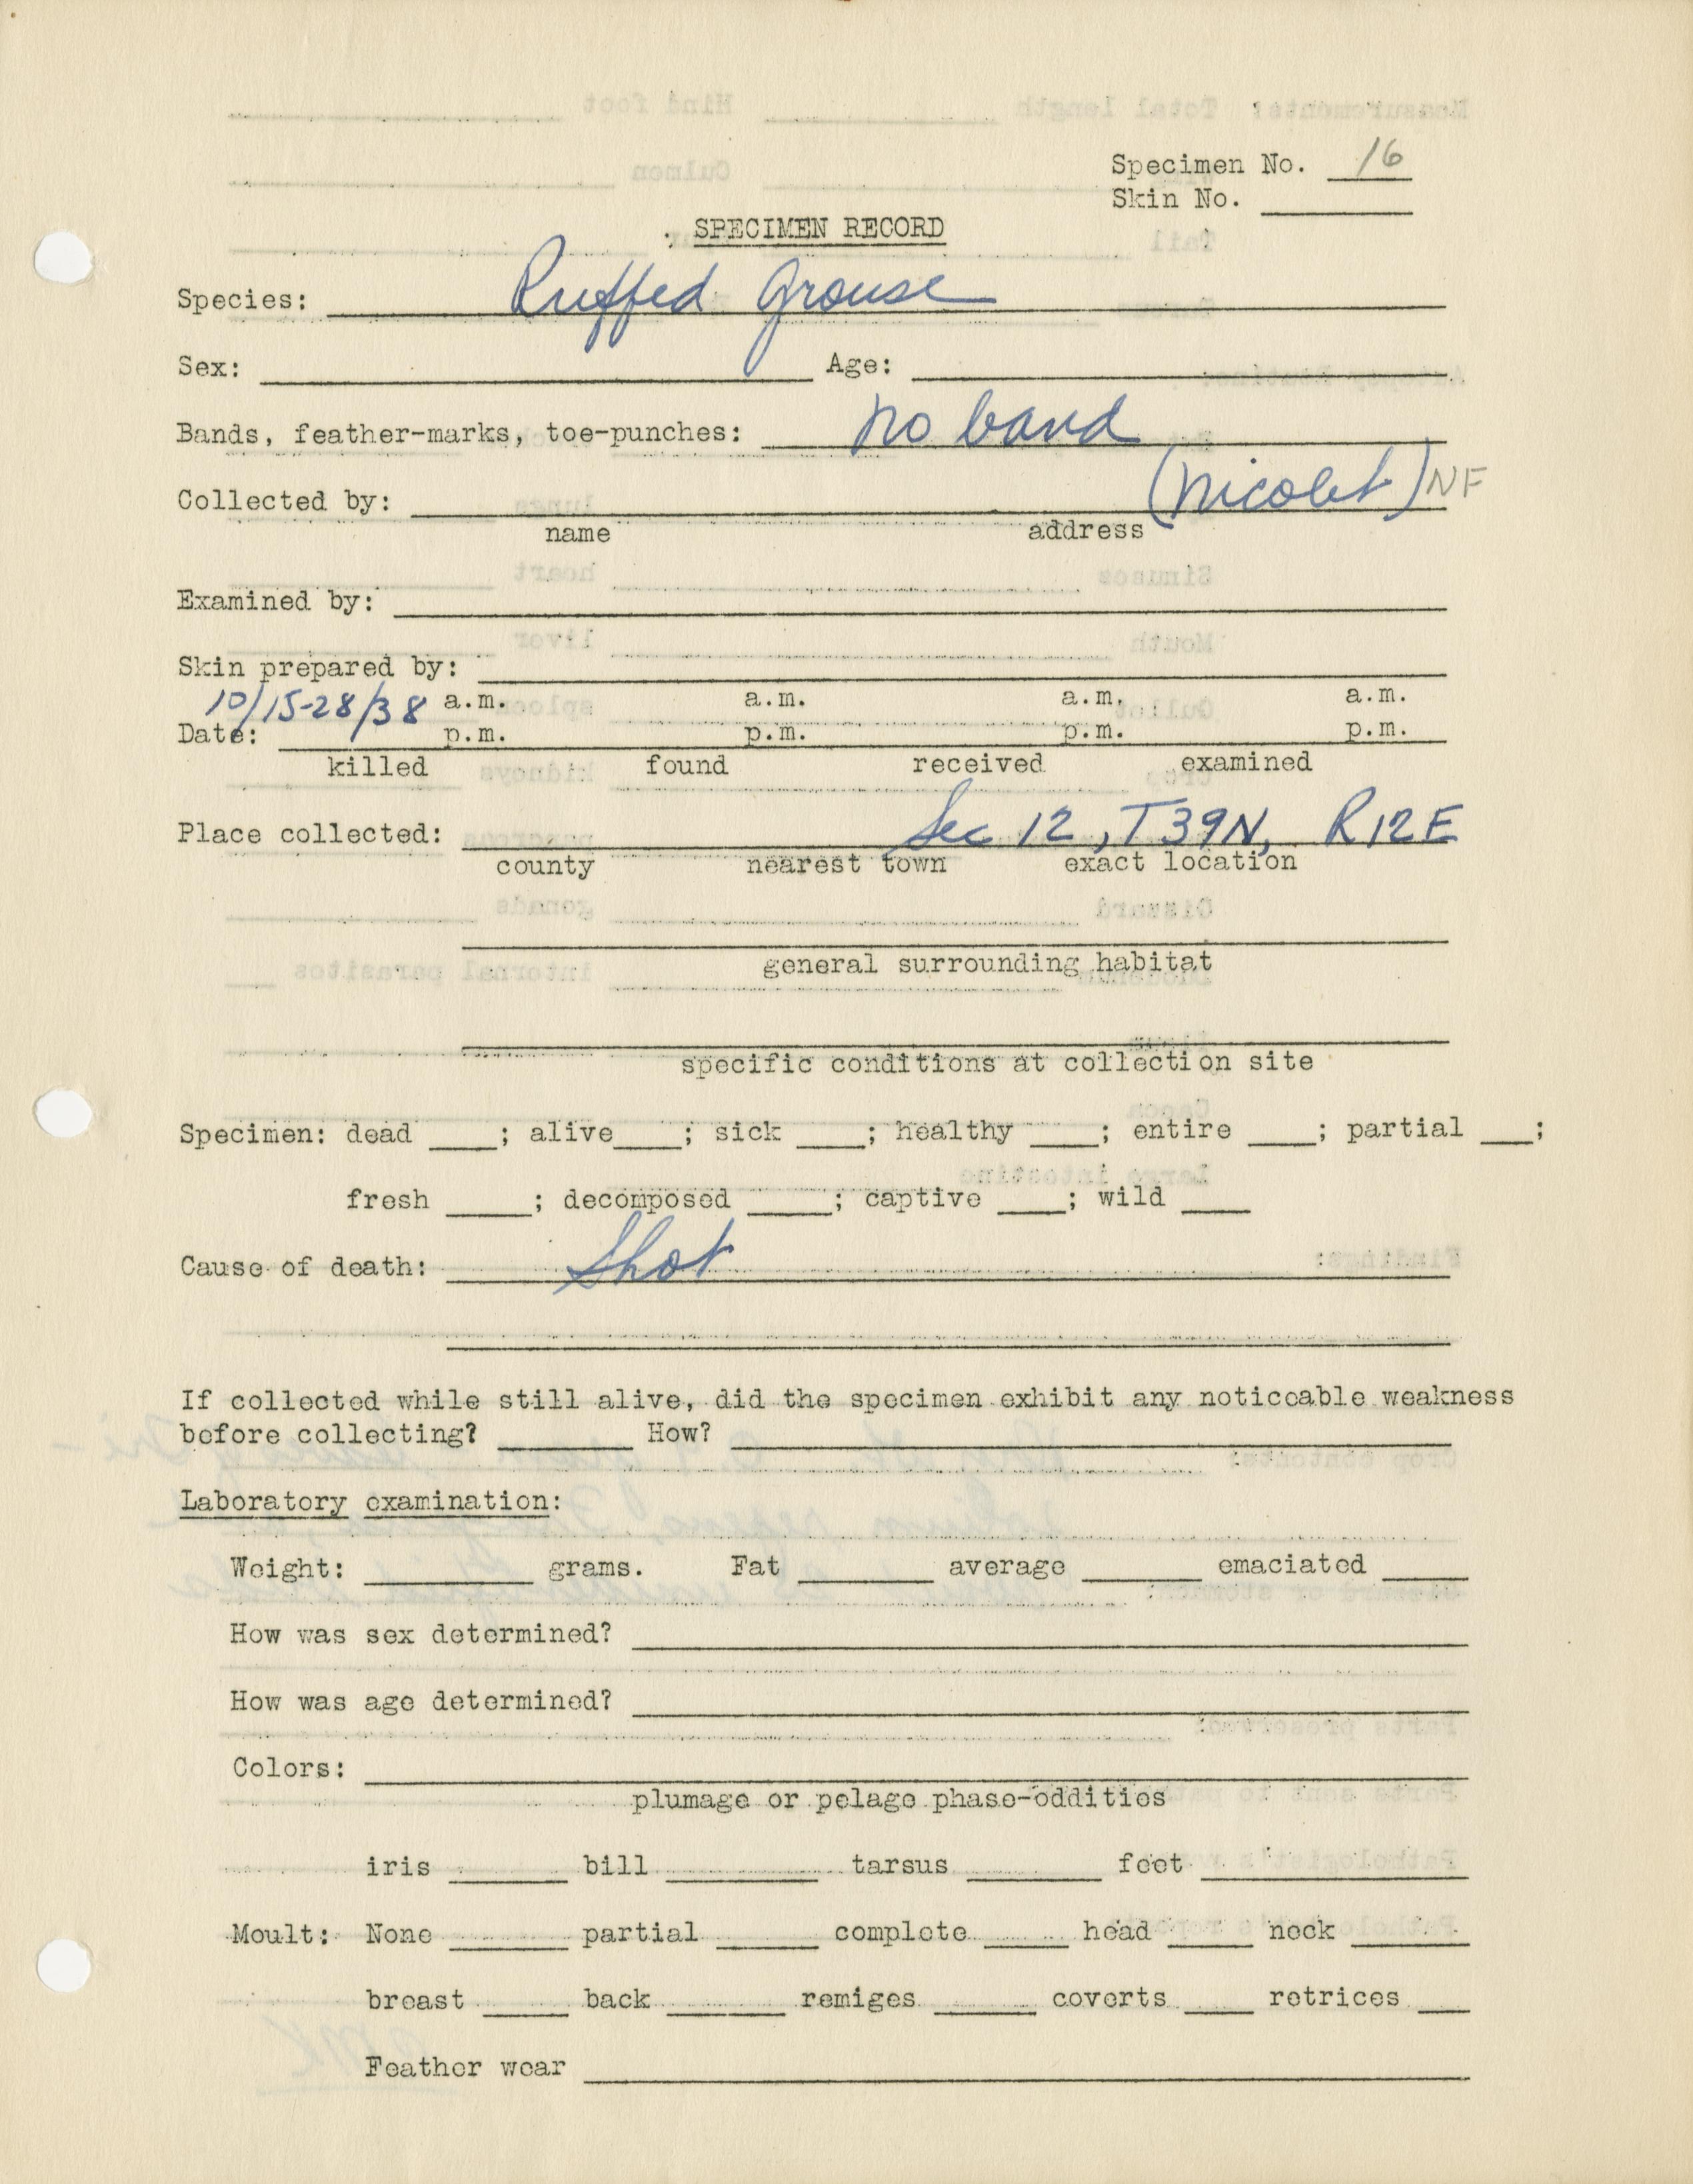 Specimen No. 16
Skin No. ____
SPECIMEN RECORD
Species: Ruffed Grouse
Sex: ____ Age: ____
Bands, feather-marks, toe-punches: no band
Collected by: ____ (Nicolet) NF
name address
Examined by: ____
Skin prepared by: ____
10/15-28/38 a.m. a.m. a.m. a.m.
Date: ____ p.m. p.m. p.m. p.m.
killed found received examined
Place collected: Sec 12, T39N, R12E
county nearest town exact location
general surrounding habitat
specific conditions at collection site
Specimen: dead ____; alive____; sick ____; healthy ____; entire ____; partial ___;
fresh ____; decomposed ____; captive ____; wild ____
Cause of death: Shot
If collected while still alive, did the specimen exhibit any noticeable weakness
before collecting? ____ How? ____
Laboratory examination:
Weight: ____ grams. Fat ____ average ____ emaciated ____
How was sex determined? ____
How was age determined? ____
Colors: ____
plumage or pelage phase-oddities
iris ____ bill ____ tarsus ____ foot ____
Moult: None ____ partial ____ complete ____ head ____ neck ____
breast ____ back ____ remiges ____ coverts ____ retrices ___
Feather wear ____